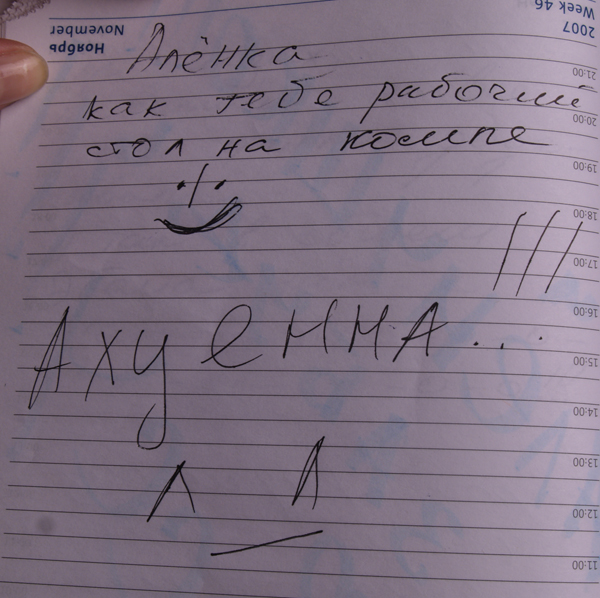 Ноябрь
November
2007
Week 46
Алёнка
как тебе рабочий
стол на компе
АхуеННА...
21:00
20:00
19:00
18:00
17:00
16:00
15:00
14:00
13:00
12:00
11:00